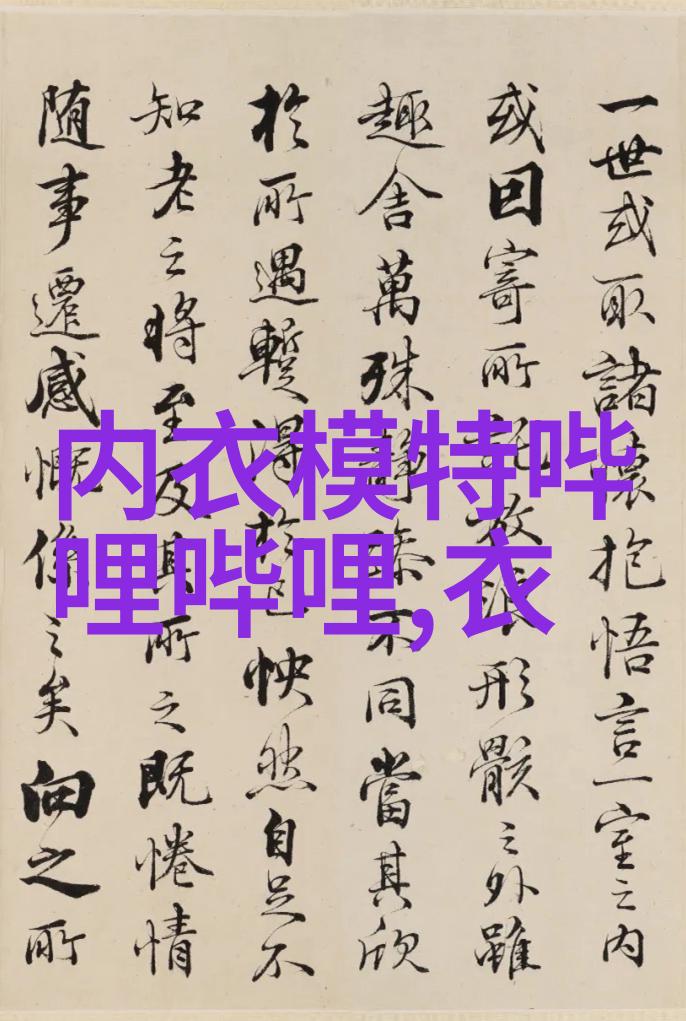 一世或取諸懷抱悟言一室之内
或因寄所託放浪形骸之外雖
趣舍萬殊静躁不同當其欣
於所遇暫得於己怏然自足不
知老之将至及其所之既惓情
随事遷感慨係之矣向之所
内衣模特哔
哩哔哩,衣